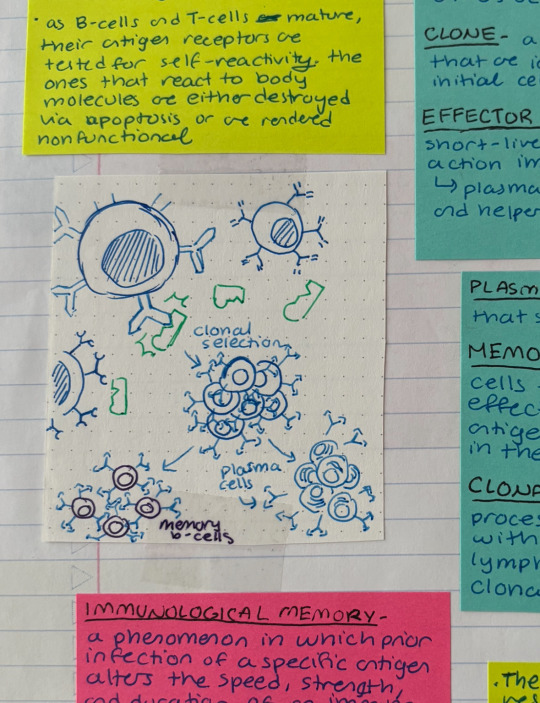 · as B-cells and T-cells mature,
their antigen receptors are
tested for self-reactivity. the
ones that react to body
molecules are either destroyed
via apoptosis or are rendered
nonfunctional
CLONE- a
that are
initial
EFFECTOR
short-live
action
↳ plasma
and helper
clonal
selection
plasma
cells
memory
b-cells
PLASM
that s
MEMO
cells
effec
antige
in the
CLONA
proces
with
lymph
clona
IMMUNOLOGICAL MEMORY-
a phenomenon in which prior
infection of a specific antigen
alters the speed, strength,
and duration of
. The